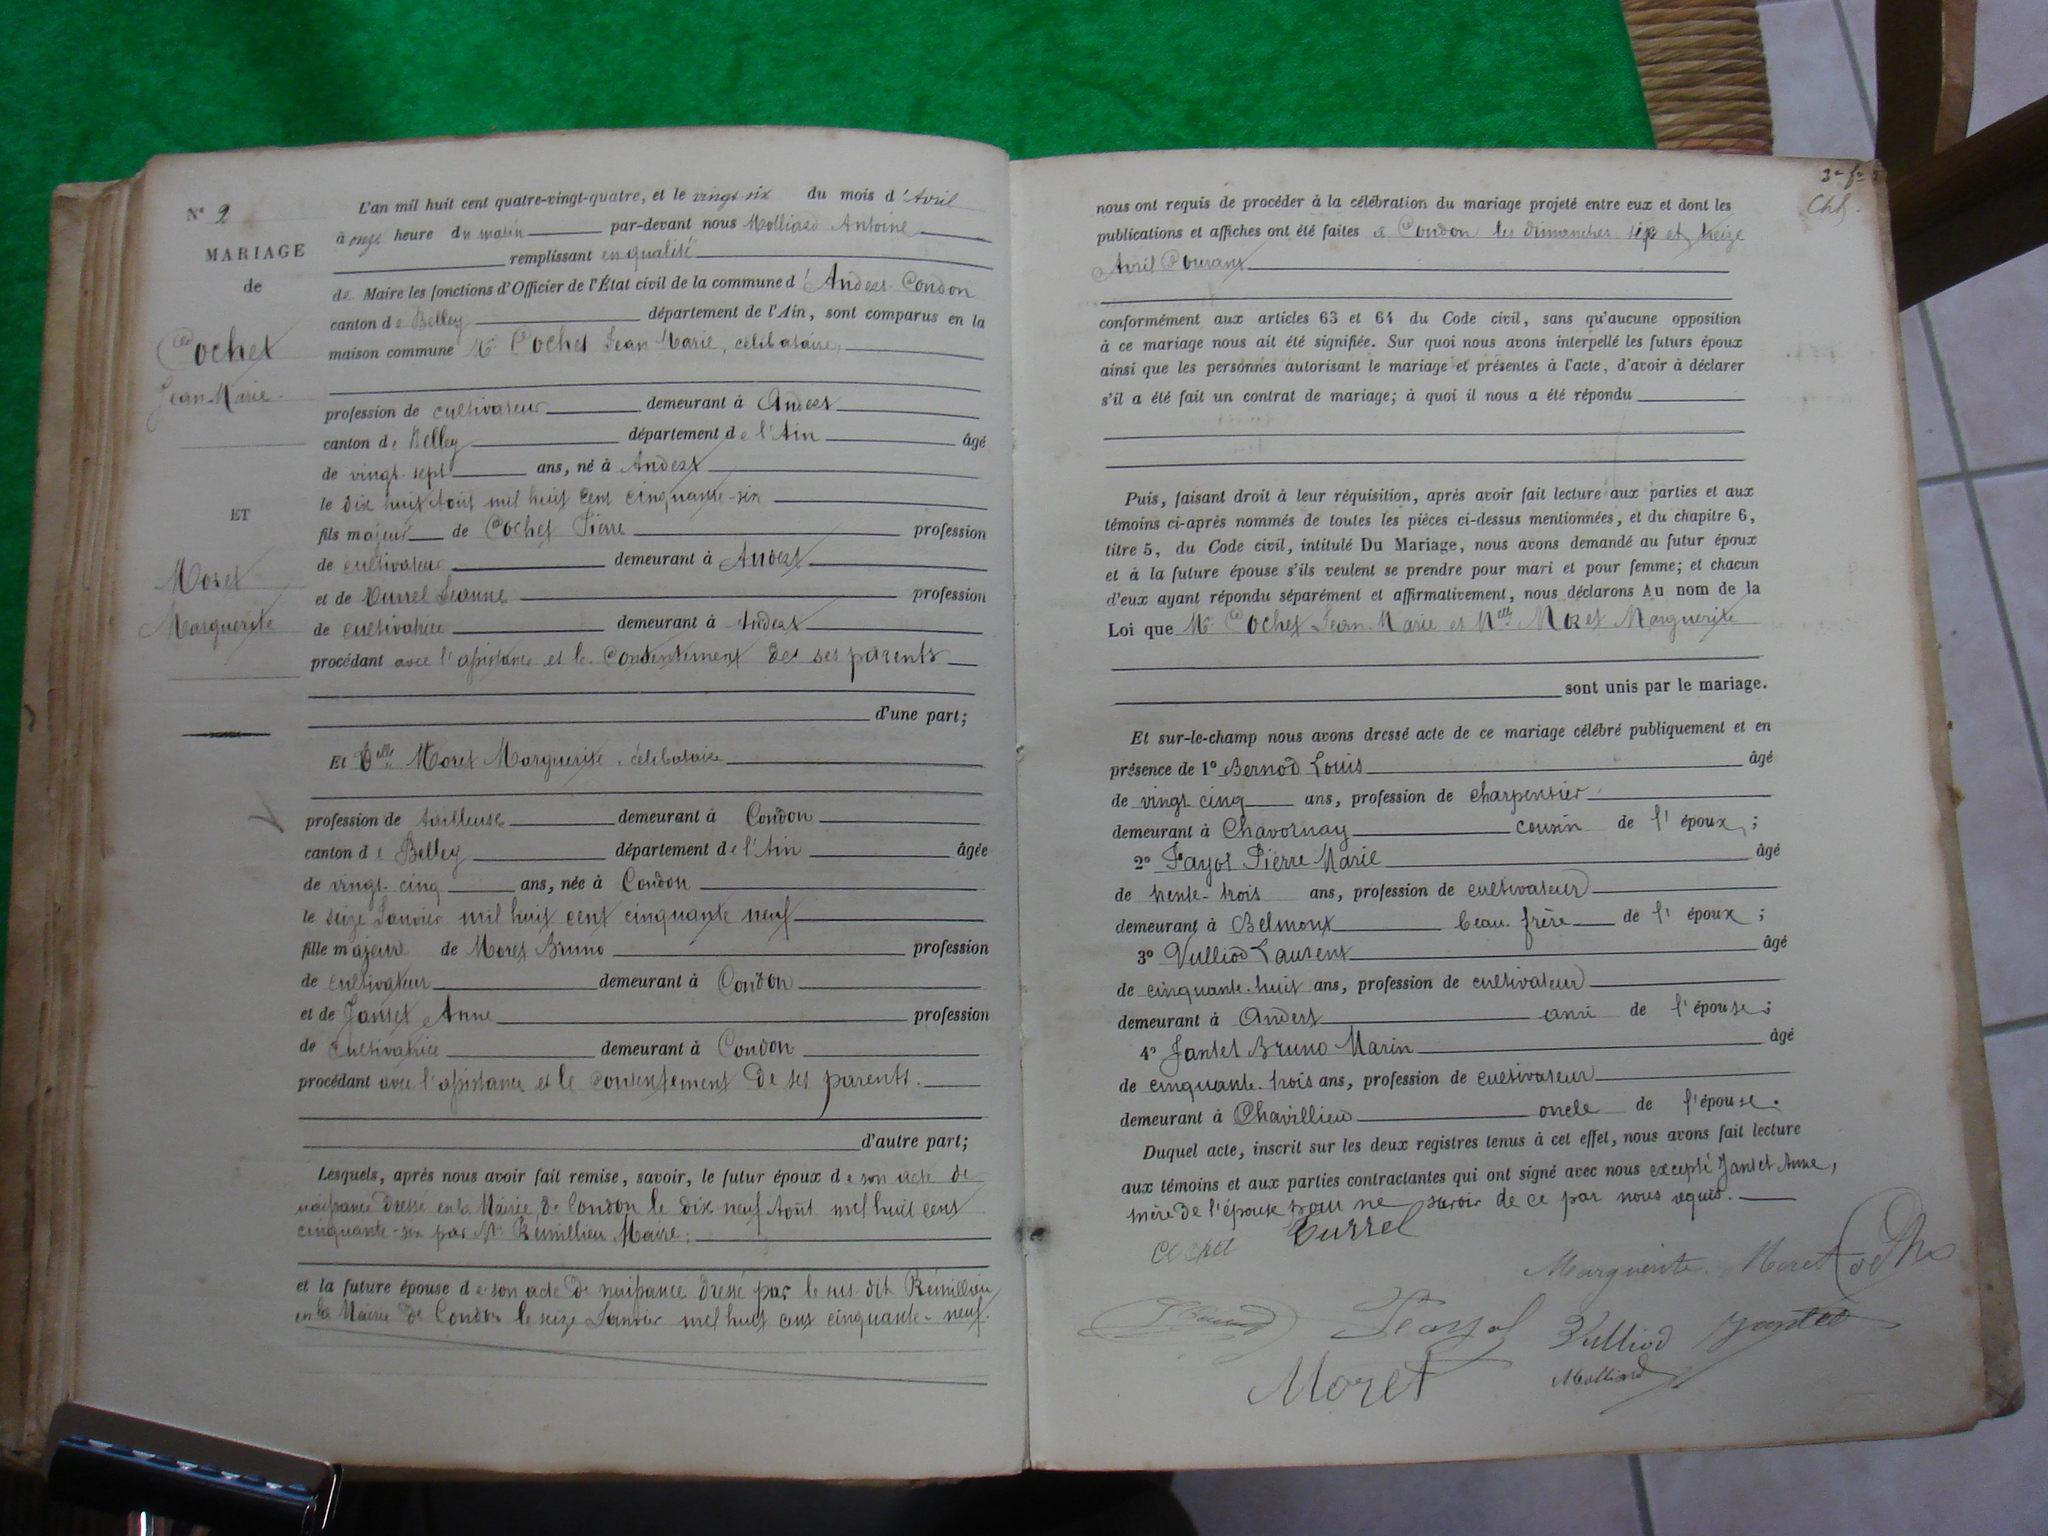 N° 2
MARIAGE
de
Cochet
Jean-Marie
ET
Moret
Marguerite
L'an mil huit cent quatre-vingt-quatre, et le vingt-six du mois d'Avril
à onze heure du matin par-devant nous Molliard Antoine
remplissant en qualité
de Maire les fonctions d'Officier de l'État civil de la commune d'Andert-Condon
canton de Belley département de l'Ain, sont comparus en la
maison commune Mr. Cochet Jean Marie, célibataire,
profession de cultivateur demeurant à Andert
canton de Belley département de l'Ain âgé
de vingt-sept ans, né à Andert
le dix huit Août mil huit cent cinquante-six
fils majeur de Cochet Pierre profession
de cultivateur demeurant à Andert
et de Durrel Jeanne profession
de cultivatrice demeurant à Andert
procédant avec l'assistance et le consentement de ses parents
d'une part;
Et Delle Moret Marguerite, célibataire
profession de tailleuse demeurant à Condon
canton de Belley département de l'Ain âgée
de vingt-cinq ans, née à Condon
le seize Janvier mil huit cent cinquante neuf
fille majeure de Moret Bruno profession
de cultivateur demeurant à Condon
et de Jantet Anne profession
de cultivatrice demeurant à Condon
procédant avec l'assistance et le consentement de ses parents.
d'autre part;
Lesquels, après nous avoir fait remise, savoir, le futur époux de son acte de
naissance dressé en la Mairie de Condon le dix neuf Août mil huit cent
cinquante-six par Mr. Rémillieu, Maire;
et la future épouse de son acte de naissance dressé par le sus-dit Rémillieu
en la Mairie de Condon le seize Janvier mil huit cent cinquante-neuf.
nous ont requis de procéder à la célébration du mariage projeté entre eux et dont les
publications et affiches ont été faites à Condon les dimanches six et treize
Avril Courant
conformément aux articles 63 et 64 du Code civil, sans qu'aucune opposition
à ce mariage nous ait été signifiée. Sur quoi nous avons interpellé les futurs époux
ainsi que les personnes autorisant le mariage et présentes à l'acte, d'avoir à déclarer
s'il a été fait un contrat de mariage; à quoi il nous a été répondu
Puis, faisant droit à leur réquisition, après avoir fait lecture aux parties et aux
témoins ci-après nommés de toutes les pièces ci-dessus mentionnées, et du chapitre 6,
titre 5, du Code civil, intitulé Du Mariage, nous avons demandé au futur époux
et à la future épouse s'ils veulent se prendre pour mari et pour femme; et chacun
d'eux ayant répondu séparément et affirmativement, nous déclarons Au nom de la
Loi que Mr. Cochet Jean-Marie et Mlle Moret Marguerite
sont unis par le mariage.
Et sur-le-champ nous avons dressé acte de ce mariage célébré publiquement et en
présence de 1° Bernod Louis âgé
de vingt cinq ans, profession de charpentier
demeurant à Chavornay cousin de l'époux;
2° Fayol Pierre-Marie âgé
de trente-trois ans, profession de cultivateur
demeurant à Belmont beau-frère de l'époux;
3° Vulliod Laurent âgé
de cinquante-huit ans, profession de cultivateur
demeurant à Andert ami de l'épouse;
4° Jantet Bruno Marin âgé
de cinquante-trois ans, profession de cultivateur
demeurant à Chavillieu oncle de l'épouse.
Duquel acte, inscrit sur les deux registres tenus à cet effet, nous avons fait lecture
aux témoins et aux parties contractantes qui ont signé avec nous excepté Jantet Anne,
mère de l'épouse pour ne savoir de ce par nous requis.
Cochet Durrel
Marguerite Moret
Vulliod Jantet
Moret Molliard